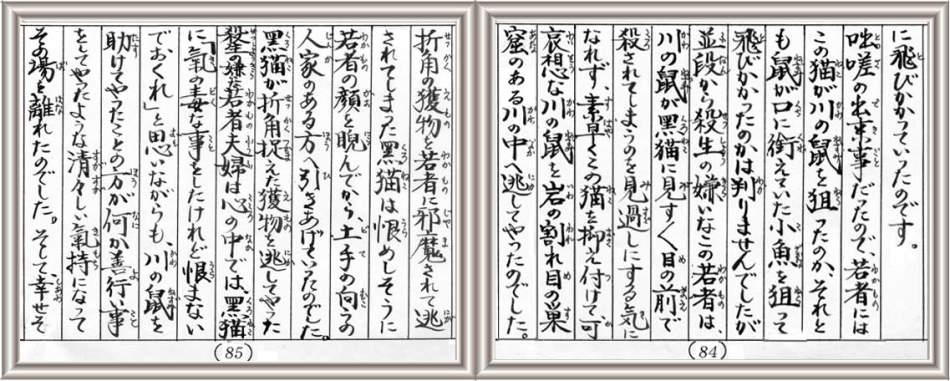 に飛びかかっていったのです。
咄嗟の出来事だったので、若者には
この猫が川の鼠を狙ったのか、それと
も鼠が口に銜えていた小魚を狙って
飛びかかったのかは判りませんでしたが
並段から殺生の嫌いなこの若者は、
川の鼠が黒猫に見すく目の前で
殺されてしまうのを見過しにする気に
なれず、素早くこの猫を抑え付けて、可
哀想な川の鼠を岩の割れ目の巣
窟のある川の中へ逃してやったのでした。
(84)
折角の獲物を若者に邪魔されて逃
されてしまった黒猫は恨めしそうに
若者の顔を睨んでから、土手の向うの
人家のある方へ引きあげていったのでした。
黒猫が折角捉えた獲物を逃してやった
殺生の嫌いな若者夫婦は心の中では、黒猫
に「氣の毒な事をしたけれど恨まない
でおくれ」と思いながらも、川の鼠を
助けてやったことの方が何か善い行い事
をしてやったような清々しい氣持になって
その場を離れたのでした。そして、幸せそ
(85)